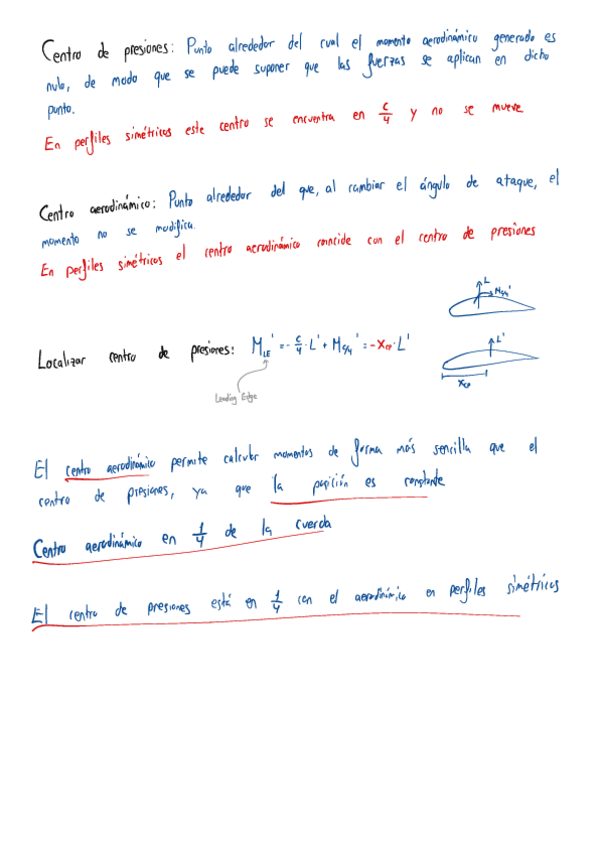 Centro de presiones: Punto alrededor del cual el momento aerodinámico generado es
nulo, de modo que se puede suponer que las fuerzas se aplican en dicho
punto.
En perfiles simétricos este centro se encuentra en c/4 y no se mueve
Centro aerodinámico: Punto alrededor del que, al cambiar el ángulo de ataque, el
momento no se modifica.
En perfiles simétricos el centro aerodinámico coincide con el centro de presiones
L'
M_c/4'
Localizar centro de presiones: M_LE' = - c/4 · L' + M_c/4' = -x_cp · L'
L'
x_cp
Leading Edge
El centro aerodinámico permite calcular momentos de forma más sencilla que el
centro de presiones, ya que la posición es constante
Centro aerodinámico en 1/4 de la cuerda
El centro de presiones está en 1/4 con el aerodinámico en perfiles simétricos